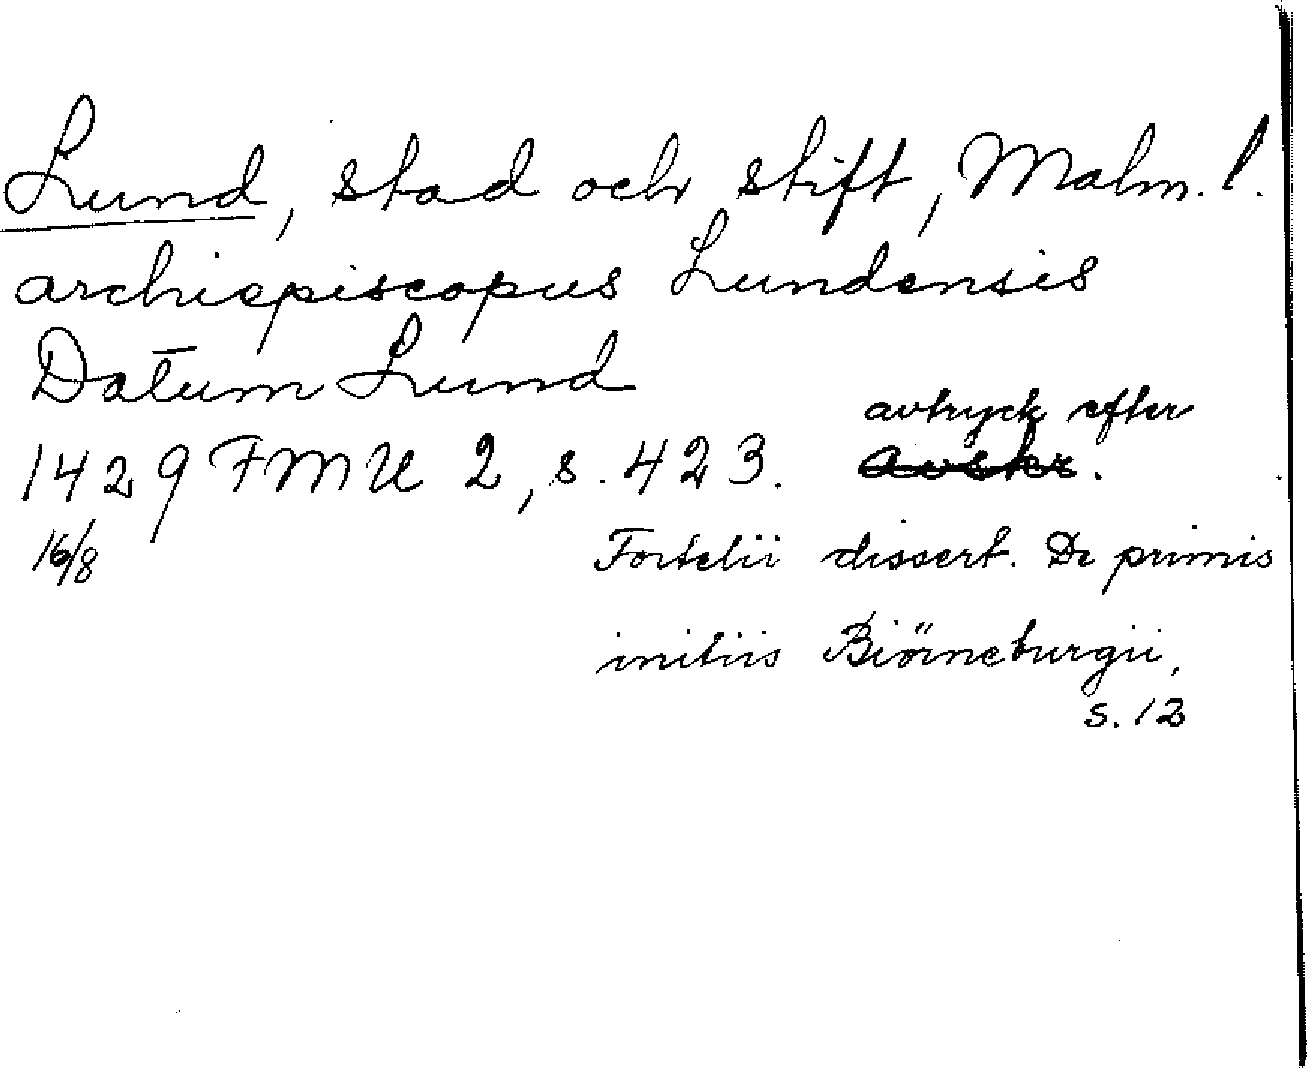 Lund, stad och stift, Malm. l.
archiepiscopus Lundensis
Datum Lund
avtryck efter
1429 FMU 2, s. 423. Avskr.
16/8 Fortelii dissert. De primis
initiis Biörneburgii,
s. 12